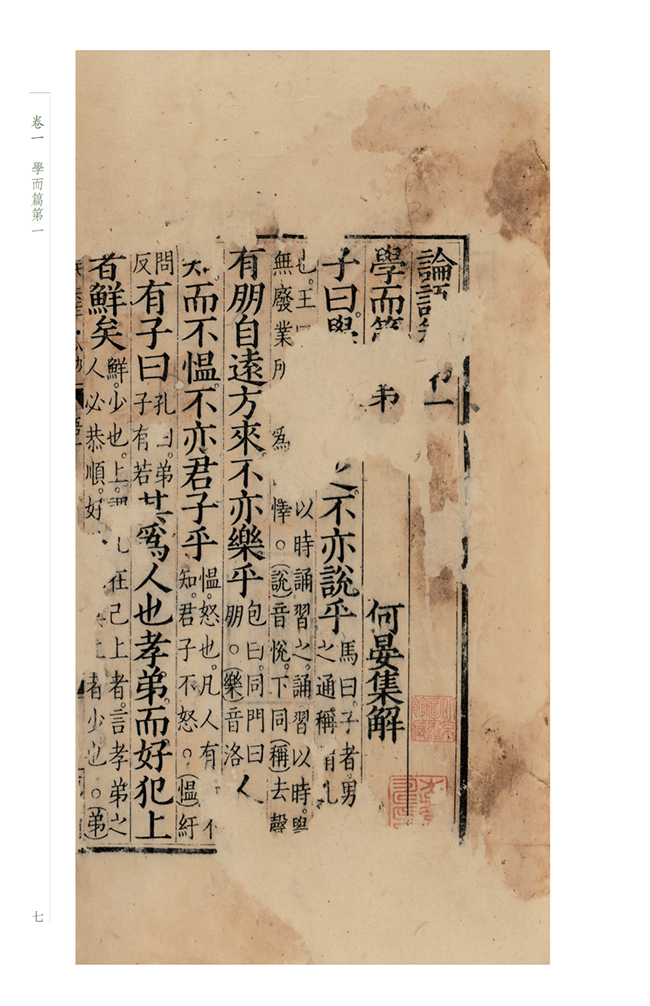 卷一　學而篇第一
七
論語
一
學而
弟
何晏集解
子曰。
不亦說乎
馬曰。子者。男
之通稱
也。王
以時誦習之。誦習以時。學
無廢業所
為
懌。○說音悅。下同稱去聲
有朋自遠方來不亦樂乎
包曰。同門曰
朋。○樂音洛
人
而不慍。不亦君子乎
慍。怒也。凡人有
不
知。君子不怒。○慍紆
問
反
有子曰
孔曰。弟
子有若
其爲人也孝弟。而好犯上
者鮮矣
鮮。少也。上
在己上者。言孝弟之
人必恭順。好
者少也。○弟